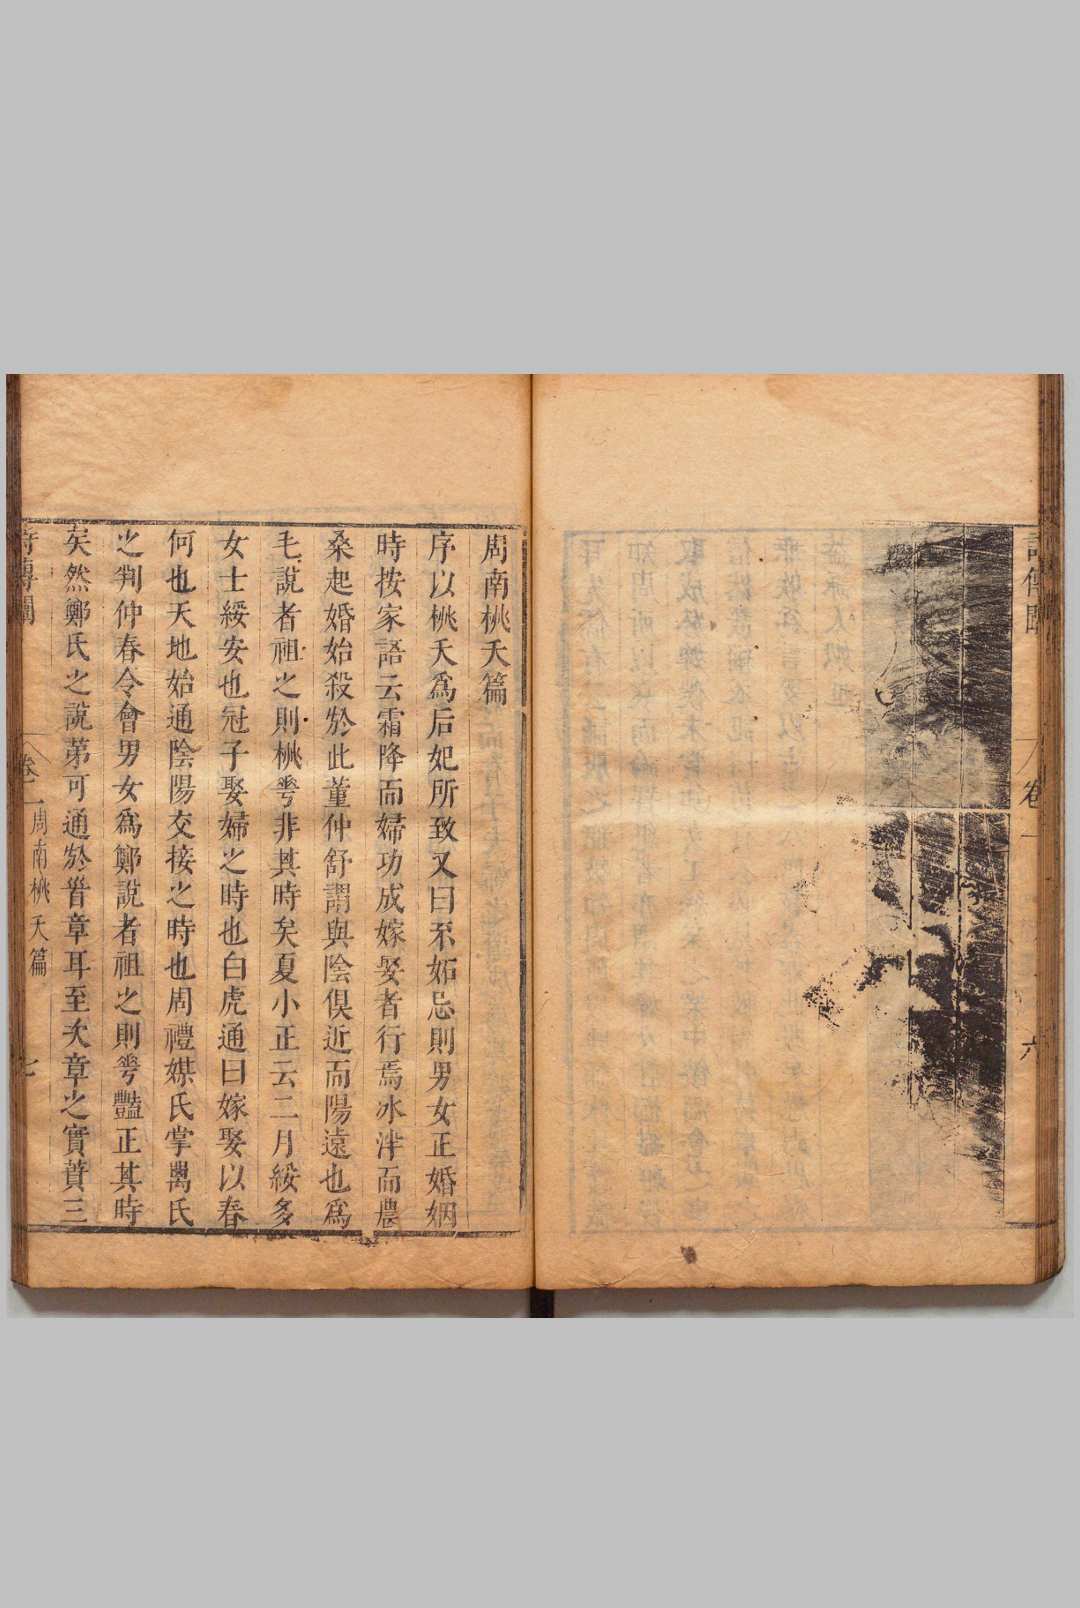 詩傳圖
卷一
六
周南桃夭篇
序以桃夭爲后妃所致又曰不妬忌則男女正婚姻
時按家語云霜降而婦功成嫁娶者行焉冰泮而農
桑起婚始殺於此董仲舒謂與陰俱近而陽遠也爲
毛說者祖之則桃雩非其時矣夏小正云二月綏多
女士綏安也冠子娶婦之時也白虎通曰嫁娶以春
何也天地始通陰陽交接之時也周禮媒氏掌萬氏
之判仲春令會男女爲鄭說者祖之則雩豔正其時
矣然鄭氏之說苐可通於首章耳至次章之實蕡三
詩傳圖
卷一
周南桃夭篇
七